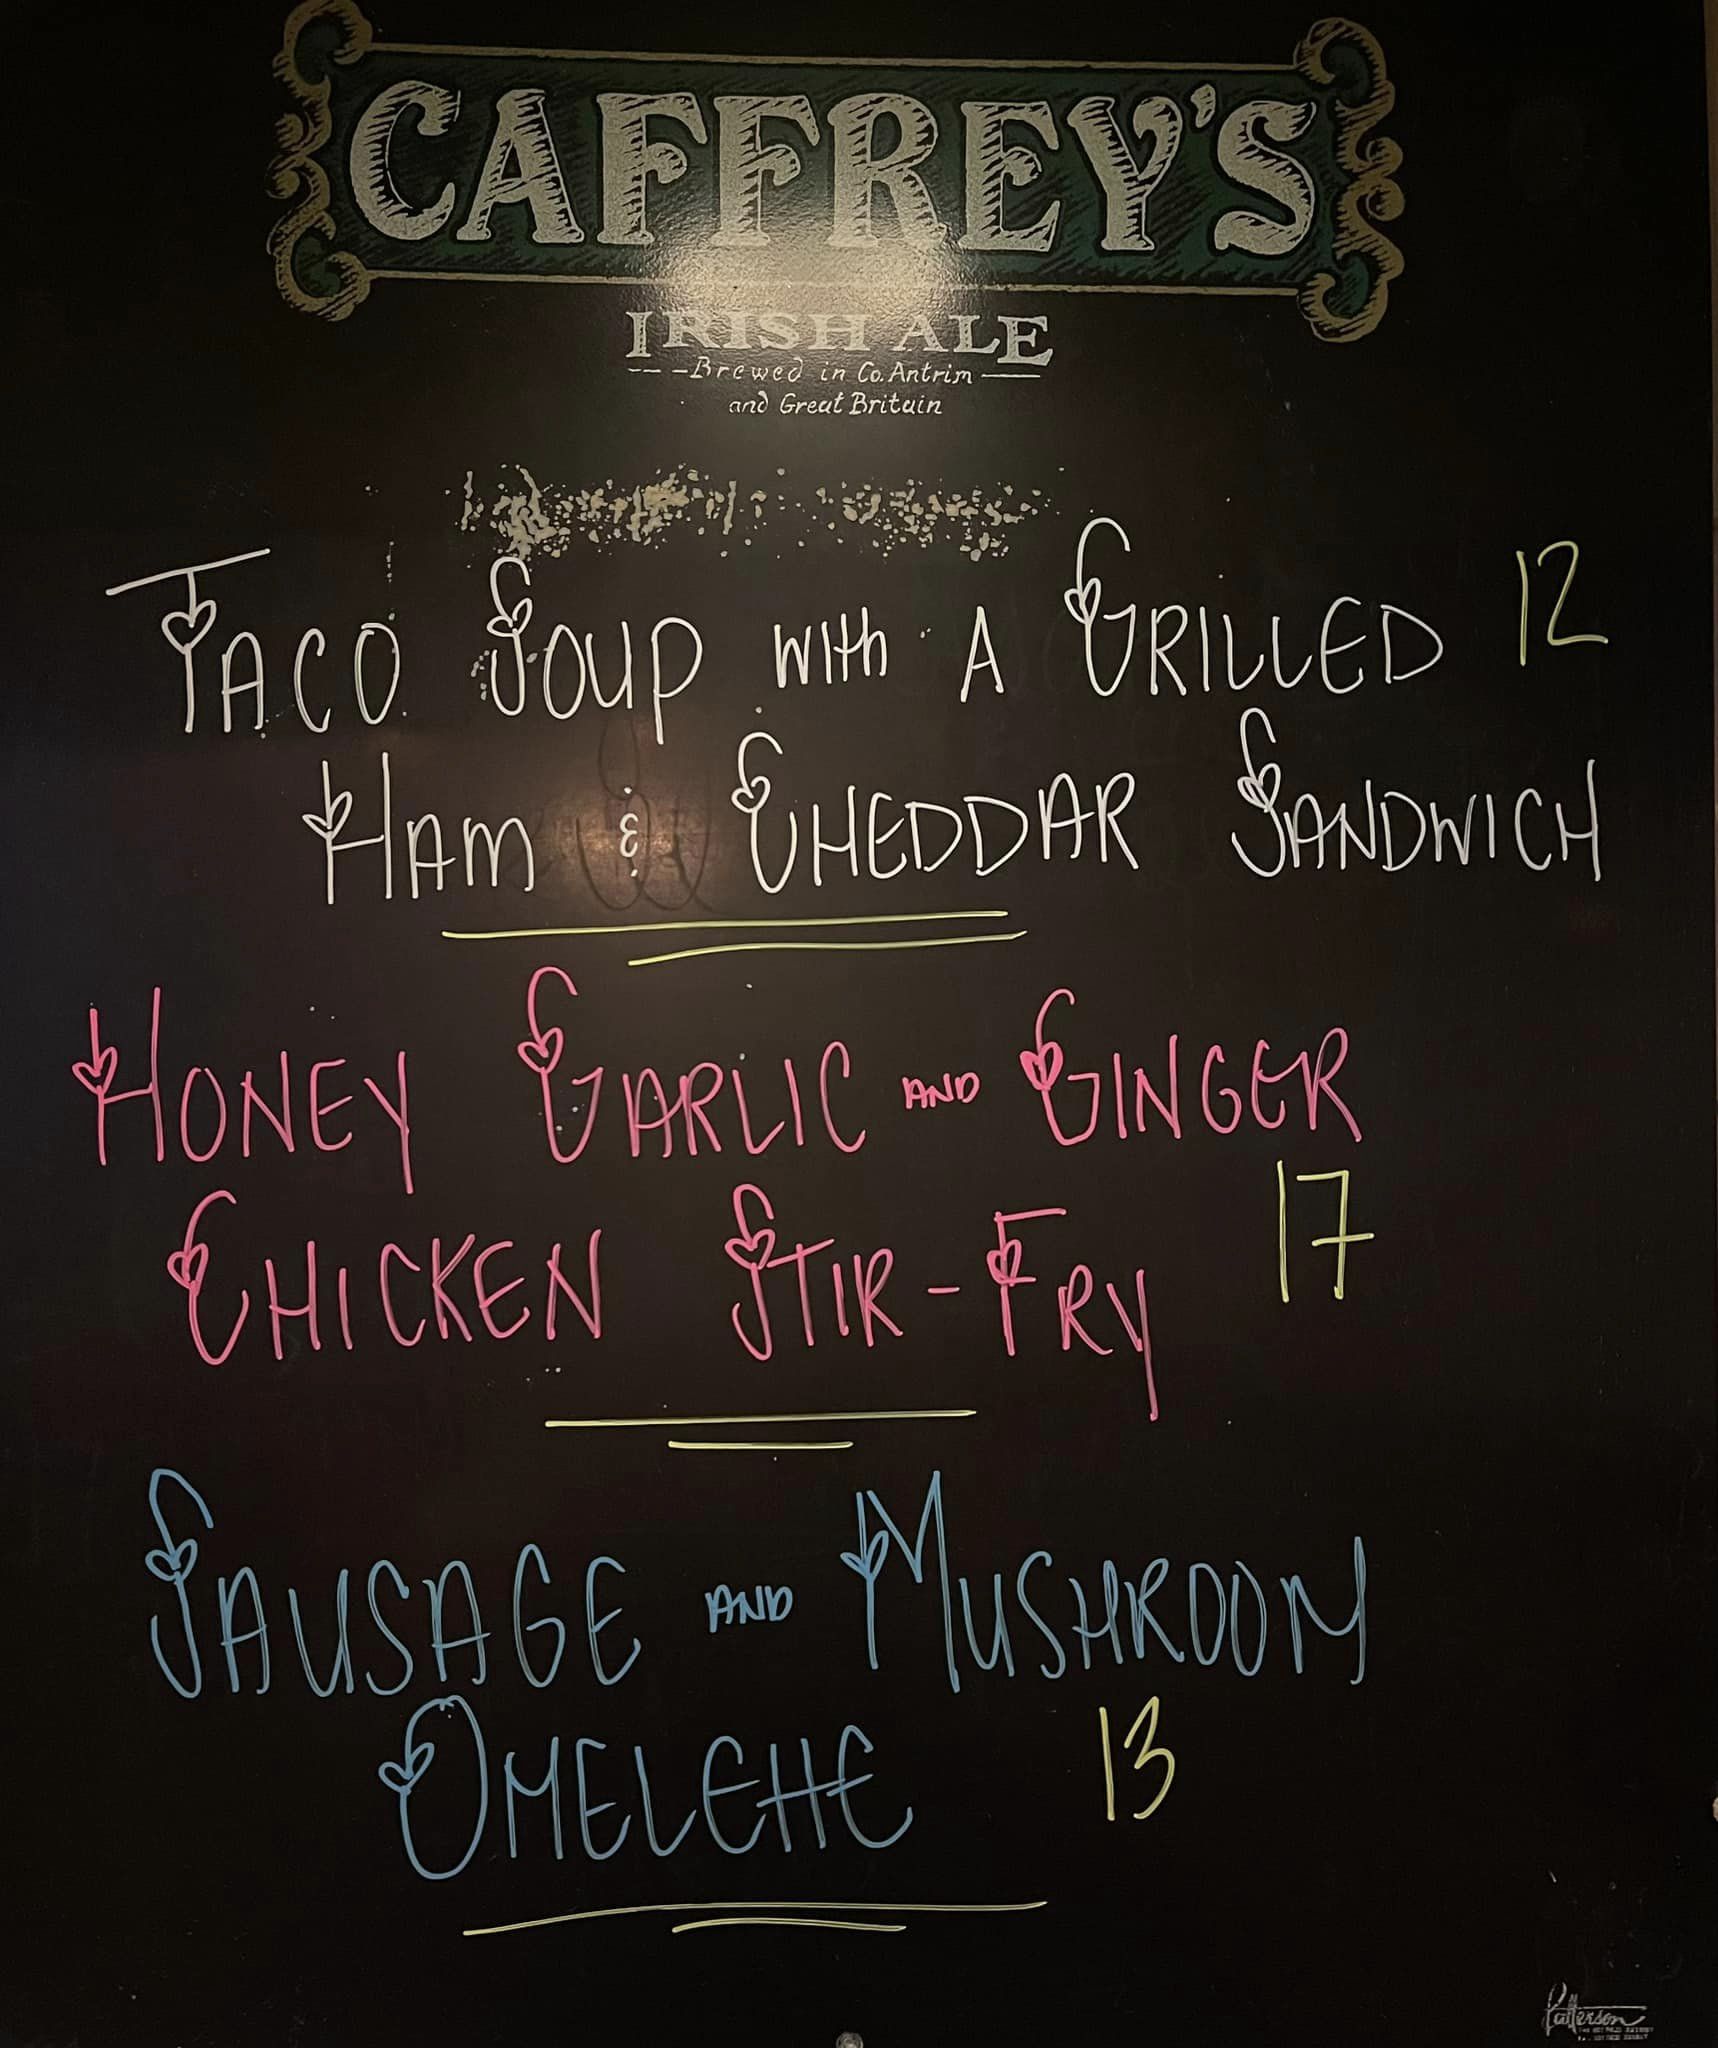 CAFFREY'S
IRISH ALE
Brewed in Co. Antrim
and Great Britain
TACO SOUP with A GRILLED 12
HAM & CHEDDAR SANDWICH
HONEY GARLIC AND GINGER
CHICKEN STIR-FRY 17
SAUSAGE AND MUSHROOM
OMELETTE 13
Patterson